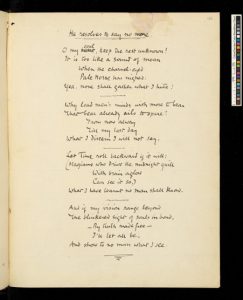 He resolves to say no more
soul
O my , keep the rest unknown!
It is too like a sound of moan
When the charnel-eyed
Pale Horse has nighed:
Yea, none shall gather what I hide!
Why load men's minds with more to bear
That bear already ails to spare?
From now alway
Till my last day
What I discern I will not say.
Let Time roll backward if it will;
(Magians who drive the midnight quill
With brain aglow
Can see it so,)
What I have learnt no man shall know.
And if my vision range beyond
The blinkered sight of souls in bond,
— By truth made free —
I'll let all be,
And show to no man what I see.